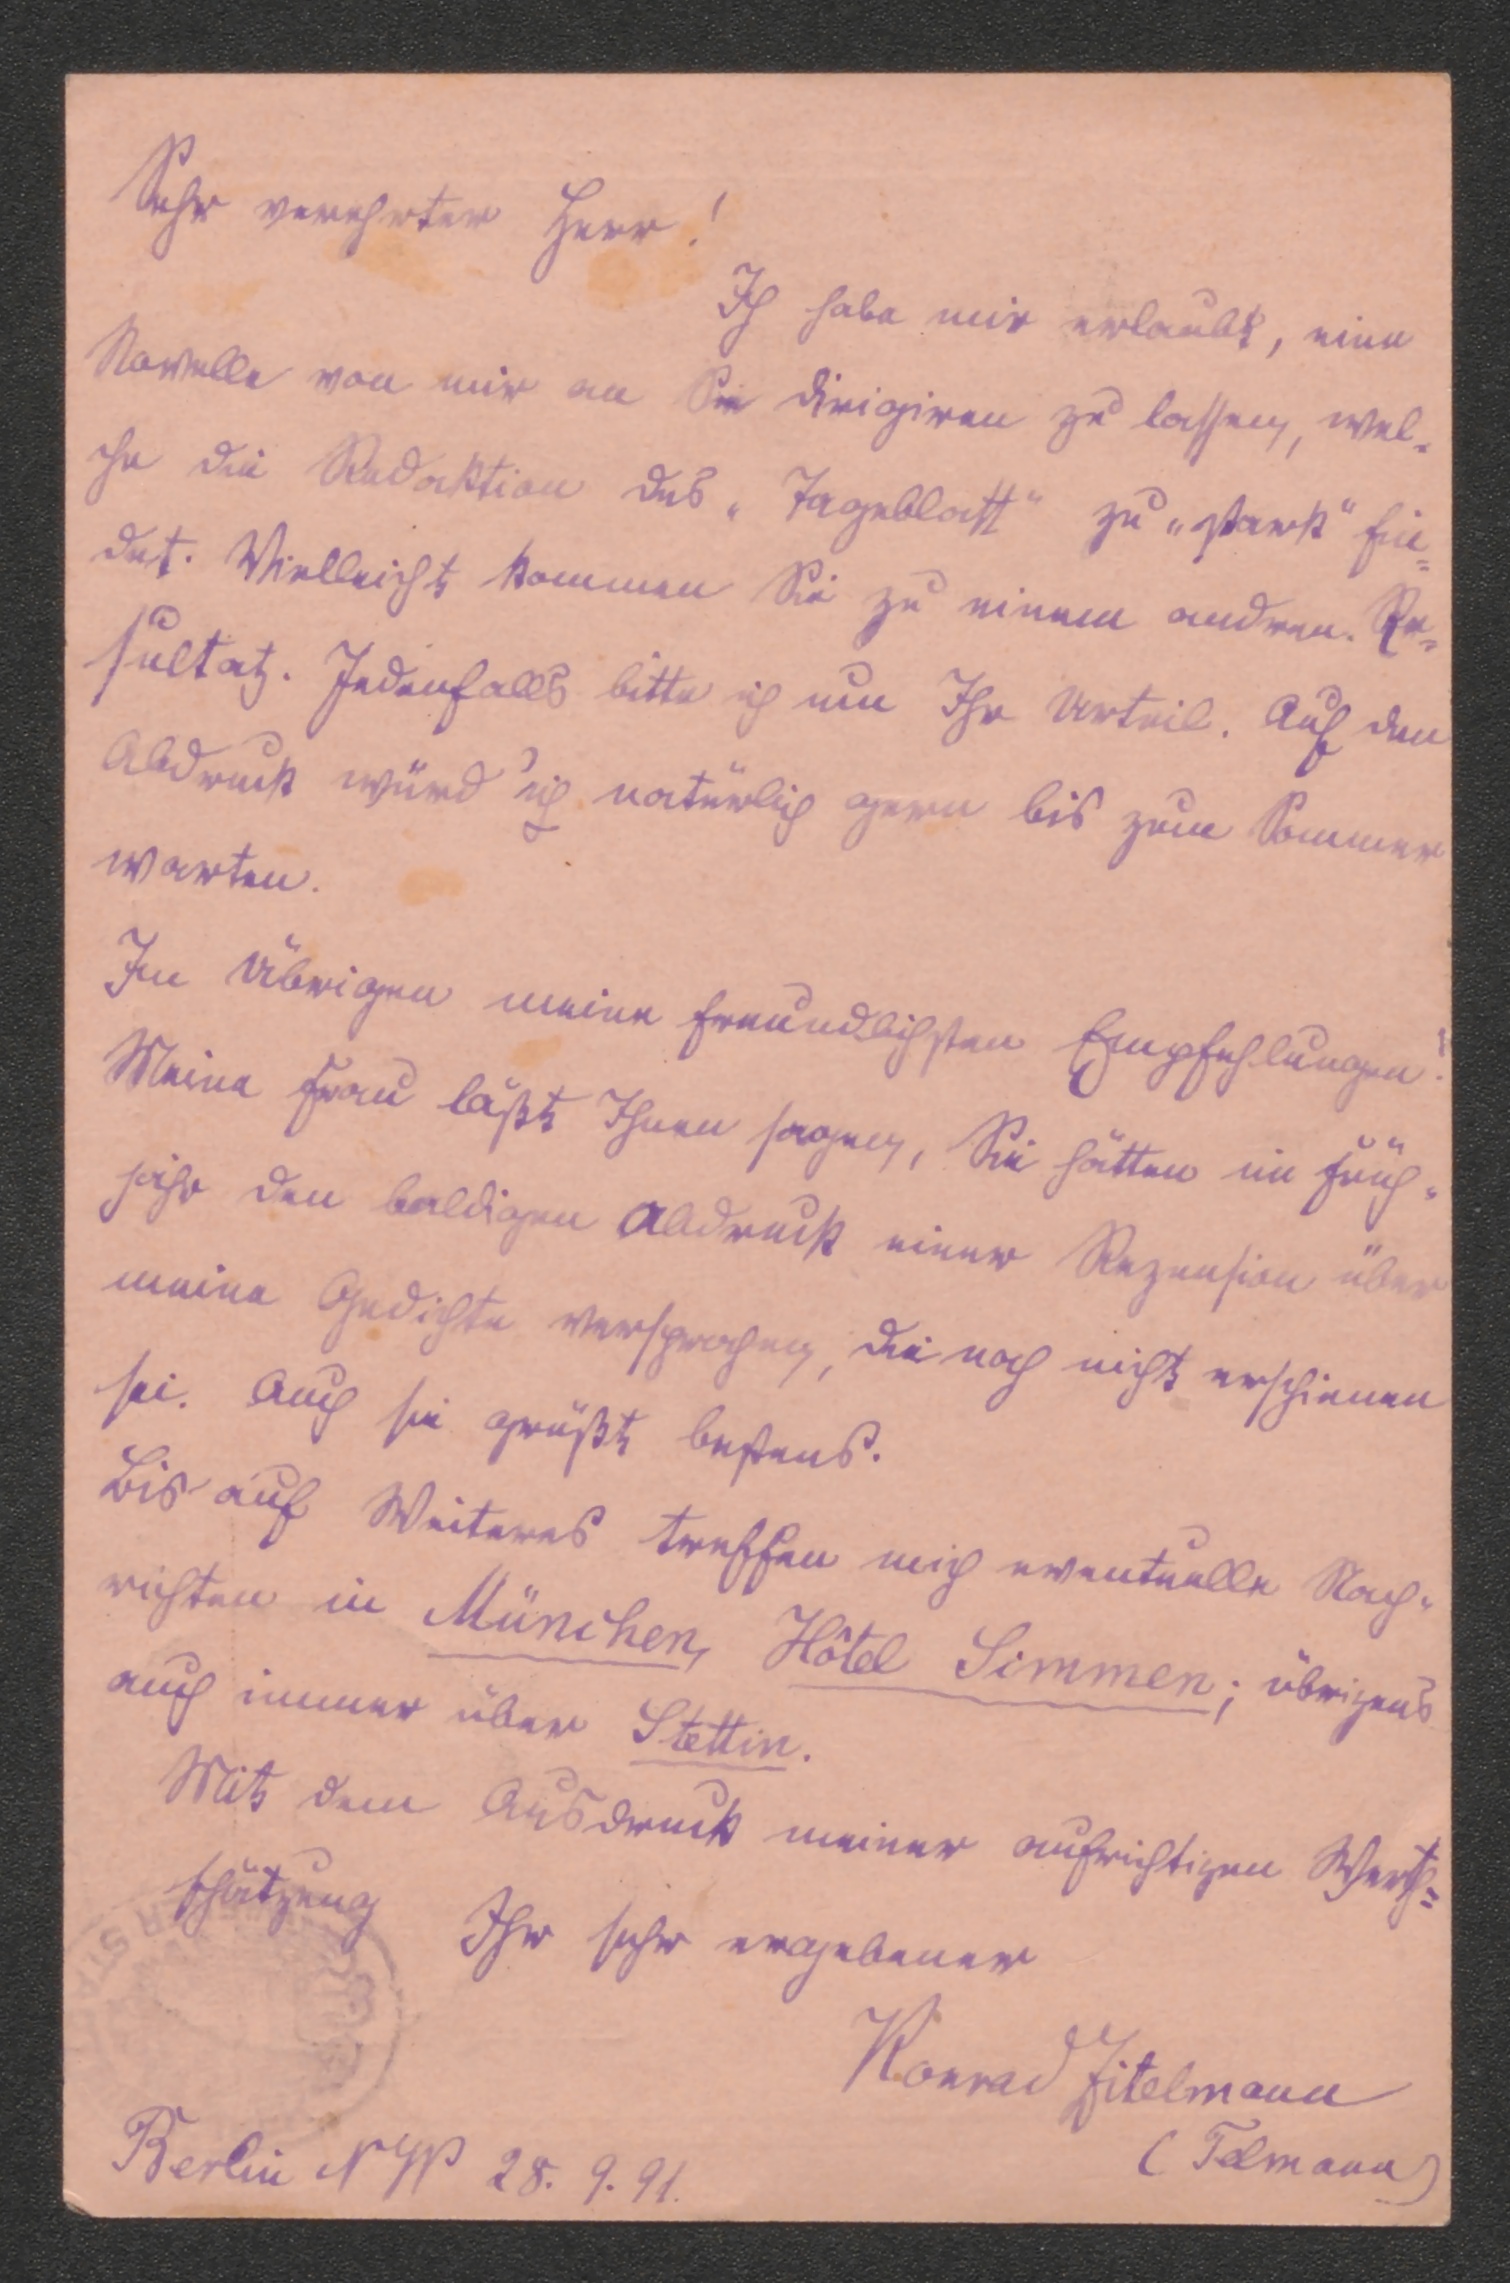 Sehr verehrter Herr!
Ich habe mir erlaubt, eine
Novelle von mir an Sie dirigiren zu lassen, wel-
che die Redaktion des „Tageblatt" zu „stark" fin-
det. Vielleicht kommen Sie zu einem andren Re-
sultat. Jedenfalls bitte ich um Ihr Urteil. Auf den
Abdruck würd' ich natürlich gern bis zum Sommer
warten.
Im Übrigen meine freundlichsten Empfehlungen!
Meine Frau läßt Ihnen sagen, Sie hätten im Früh-
jahr den baldigen Abdruck einer Rezension über
meine Gedichte versprochen, die noch nicht erschienen
sei. Auch sie grüßt bestens.
Bis auf Weiteres treffen mich eventuelle Nach-
richten in München, Hôtel Simmen; übrigens
auch immer über Stettin.
Mit dem Ausdruck meiner aufrichtigen Werth-
schätzung
Ihr sehr ergebener
Konrad Zitelmann
(Telmann)
Berlin NW 28. 9. 91.